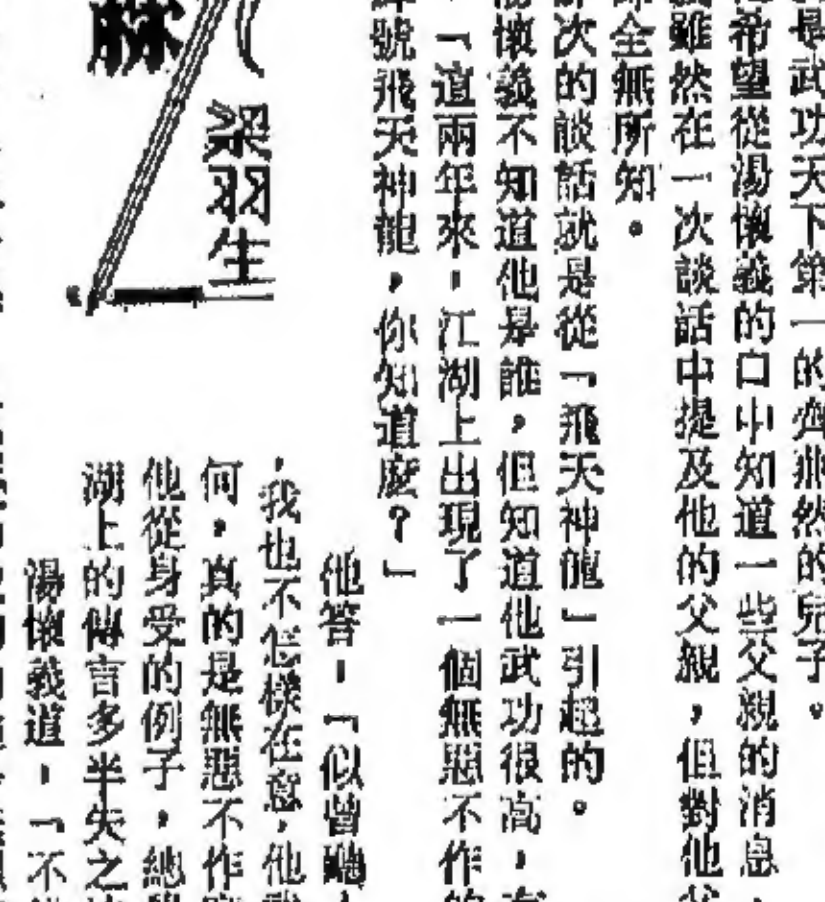 是武功天下第一的齊燕然的兒子。
希望從湯懷義的口中知道一些父親的消息，
雖然在一次談話中提及他的父親，但對他
全無所知。
次的談話就是從「飛天神龍」引起的。
湯懷義不知道他是誰，但知道他武功很高，
「這兩年來，江湖上出現了一個無惡不作的
號飛天神龍，你知道麼？」
梁羽生
他答：「似曾聽
，我也不怎樣在意，他
何，真的是無惡不作
他從身受的例子，總
湖上的傳言多半失之
湯懷義道：「不